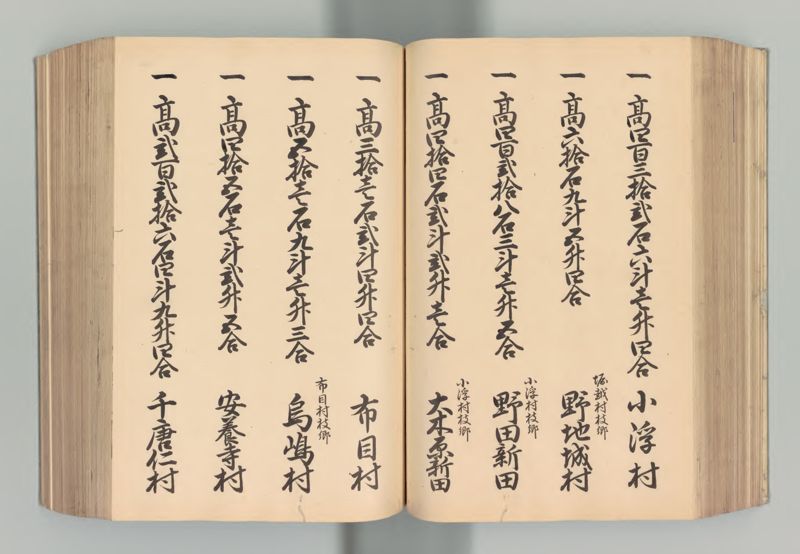 一 高四百三拾弐石六斗壱升四合 小浮村
一 高六拾石九斗五升四合 堀越村枝郷 野地城村
一 高四百弐拾八石三斗壱升五合 小浮村枝郷 野田新田
一 高四拾四石弐斗弐升壱合 小浮村枝郷 大木原新田
一 高三拾壱石弐斗四升四合 布目村
一 高五拾壱石九斗壱升三合 布目村枝郷 烏嶋村
一 高四拾五石壱斗弐升五合 安養寺村
一 高弐百弐拾六石四斗九升四合 千唐仁村